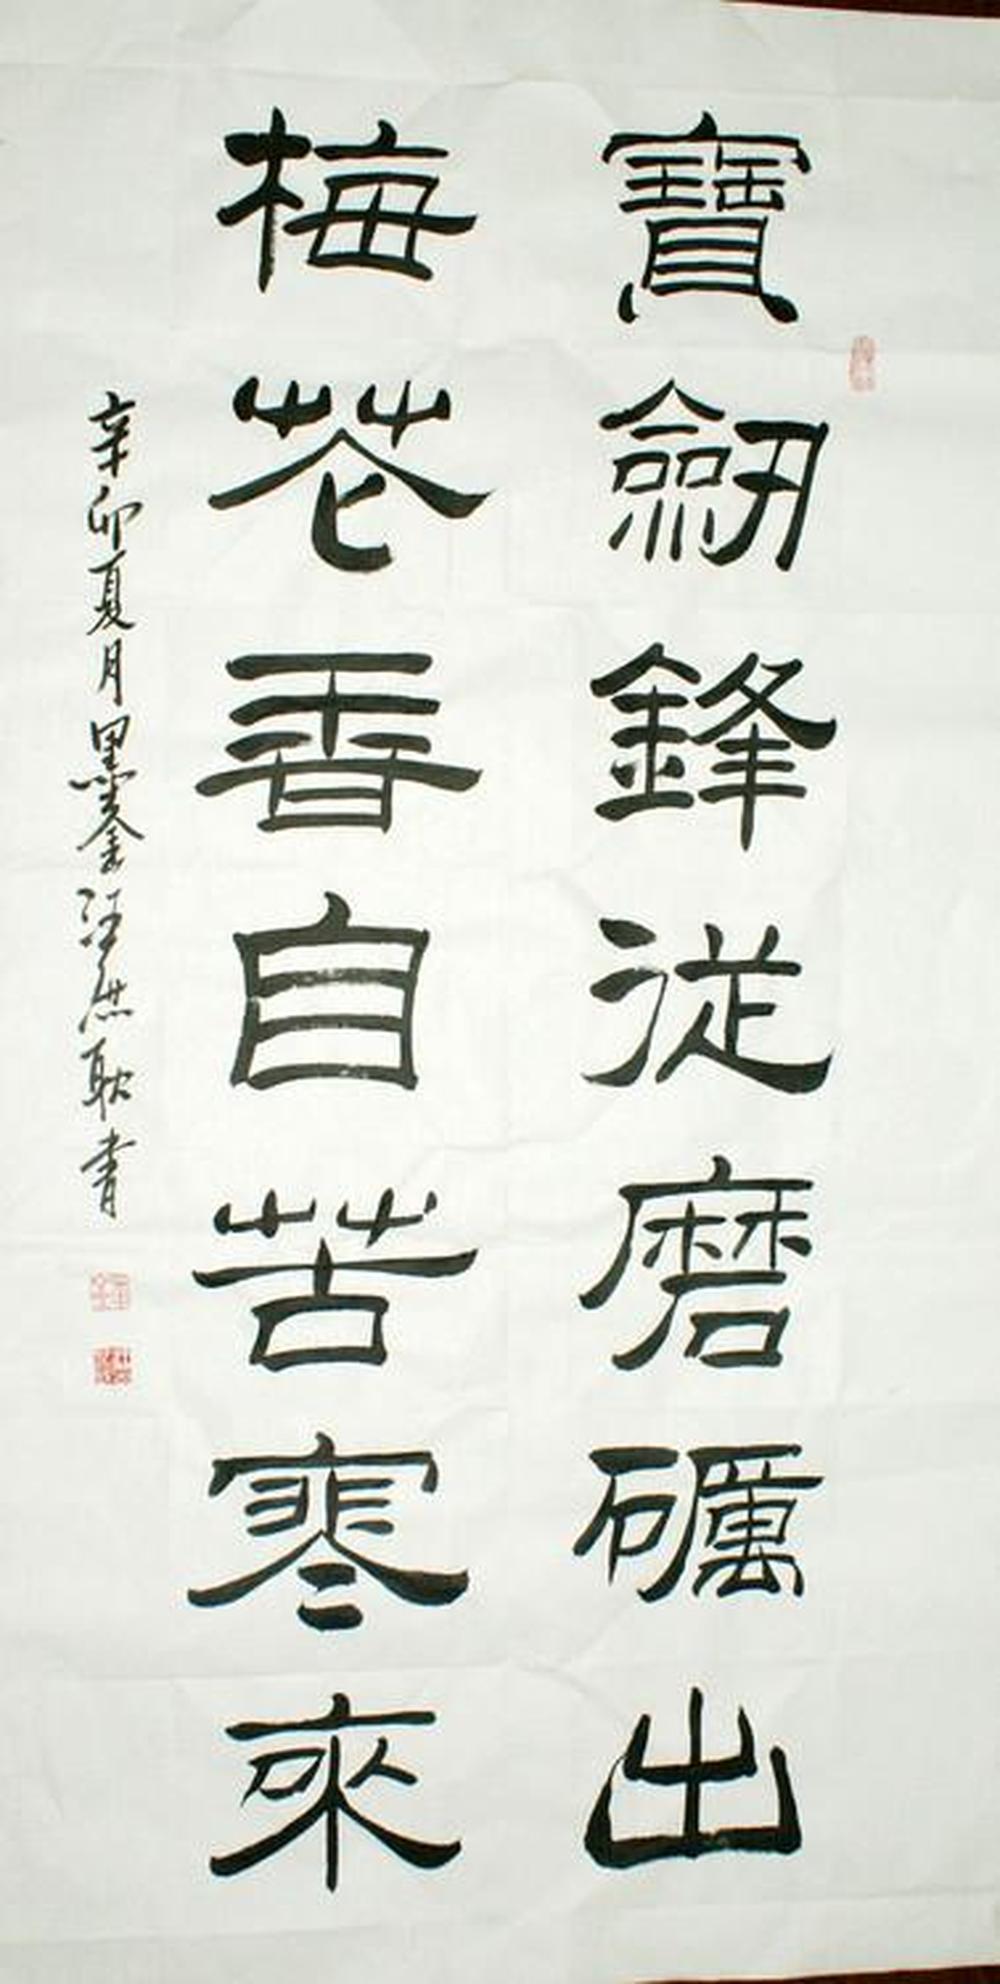 寶劒鋒從磨礪出
梅花香自苦寒來
辛卯夏月墨奎汪庶耿書